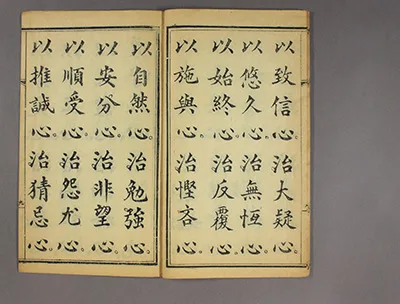 以致信心。治大疑心。
以悠久心。治無恆心。
以始終心。治反覆心。
以施與心。治慳吝心。
以自然心。治勉強心。
以安分心。治非望心。
以順受心。治怨尤心。
以推誠心。治猜忌心。